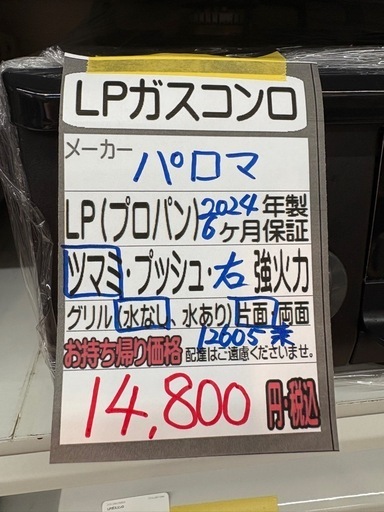 LPガスコンロ
メーカー パロマ
LP(プロパン)2024年製
6ヶ月保証
ツマミ・プッシュ・右 強火力
グリル(水なし、水あり)片面/両面
12605
お持ち帰り価格 配達はご遠慮くださいませ。
14,800 円・税込